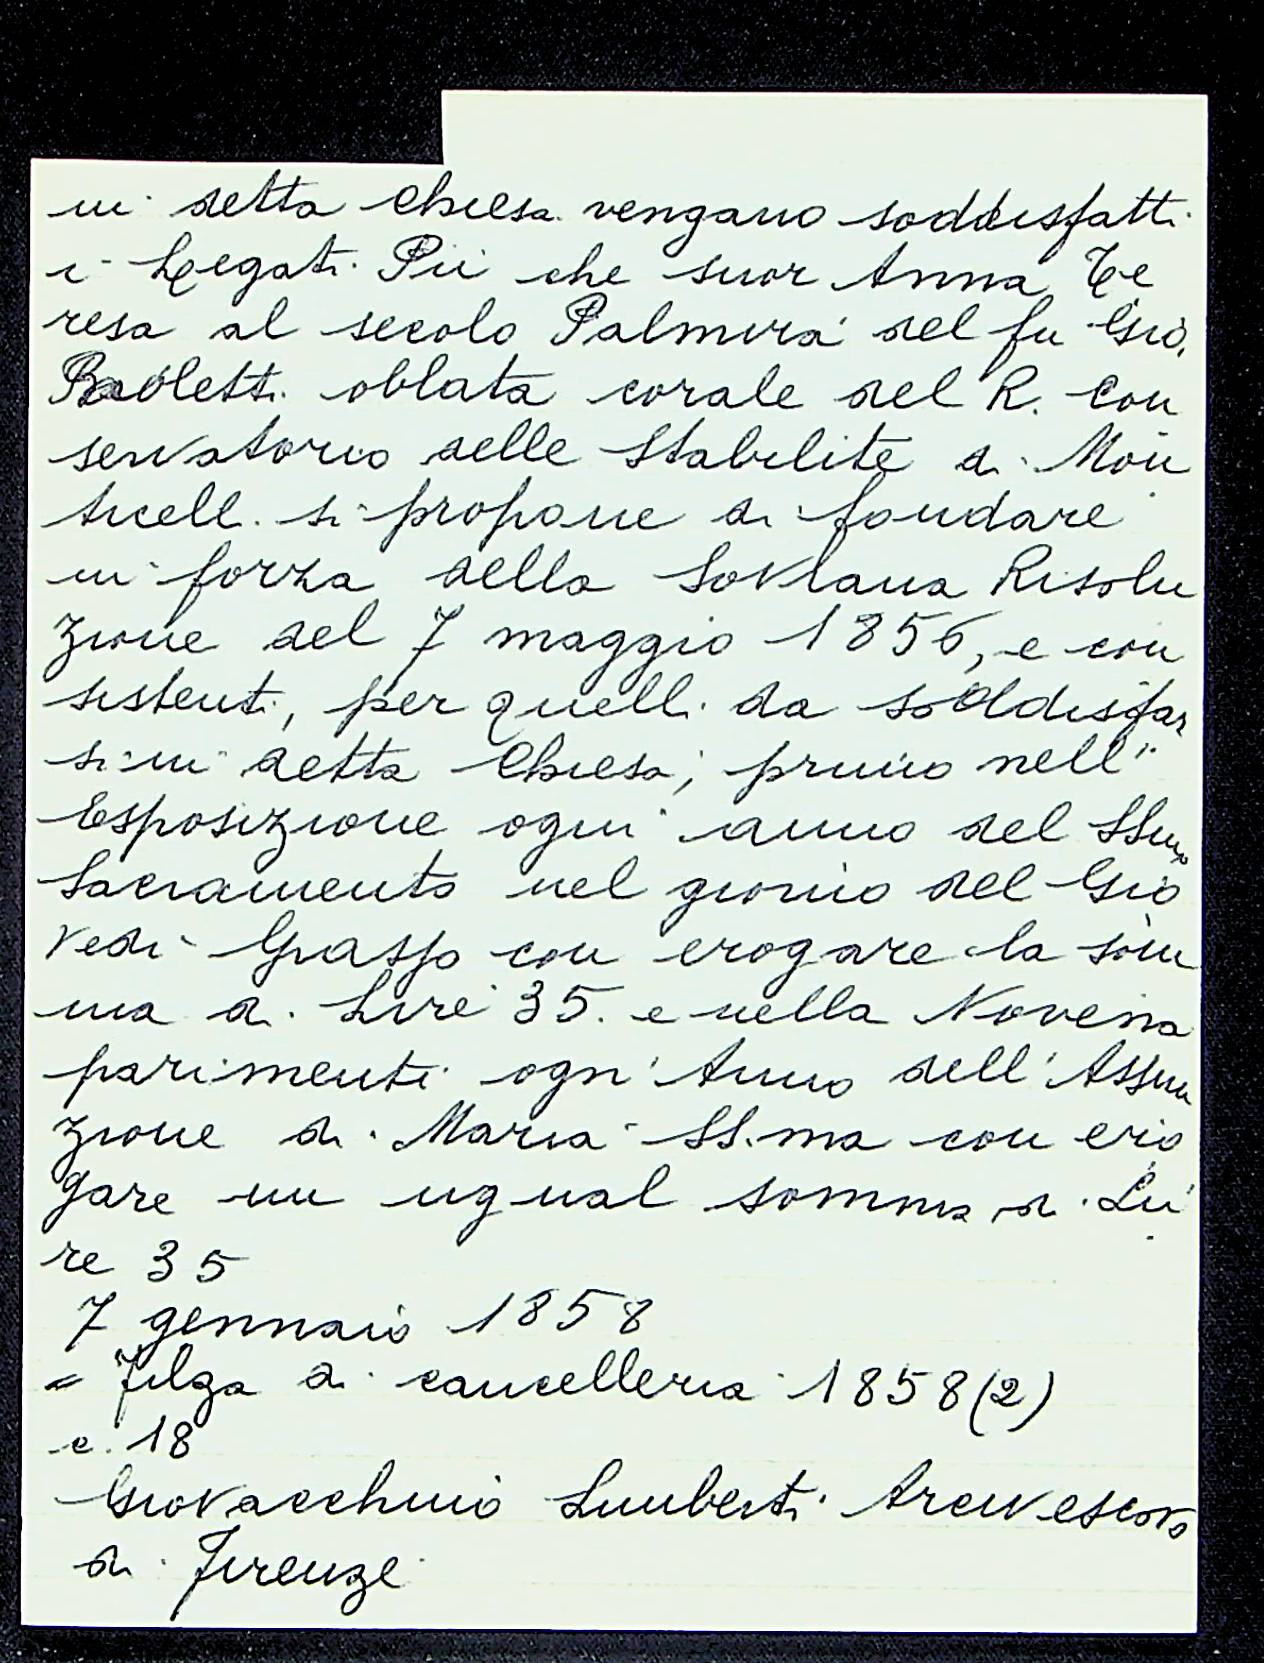 in detta Chiesa vengano soddisfatti
i Legati Pii che suor Anna Te
resa al secolo Palmira del fu Gio.
Paoletti oblata corale del R. Con
servatorio delle Stabilite di Mon
ticelli si propone di fondare
in forza della Sovrana Risolu
zione del 7 maggio 1856, e con
sistenti, per quelli da soddisfar
si in detta Chiesa; primo nell'
Esposizione ogni anno del SSmo
Sacramento nel giorno del Gio
vedi Grasso con erogare la som
ma di Lire 35. e nella Novena
parimenti ogn'Anno dell'Assun
zione di Maria SS.ma con ero
gare un ugual somma di Li
re 35
7 gennaio 1858
= Filza di cancelleria 1858(2)
c. 18
Giovacchino Limberti Arcivescovo
di Firenze